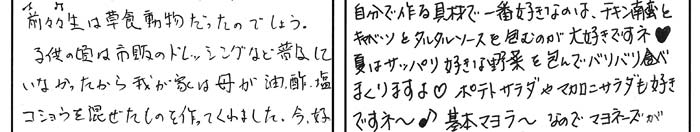 前々々生は草食動物だったのでしょう。
子供の頃は市販のドレッシングなど普及して
いなかったから我が家は母が油、酢、塩
コショウを混ぜたものを作ってくれました。今、好
自分で作る具材で一番好きなのは、チキン南蛮と
キャベツとタルタルソースを包むのが大好きですネ♥
夏はサッパリ好きな野菜を包んでバリバリ食べ
まくりますよ♡ ポテトサラダやマカロニサラダも好き
ですネ〜♪ 基本マヨラ〜なのでマヨネーズが